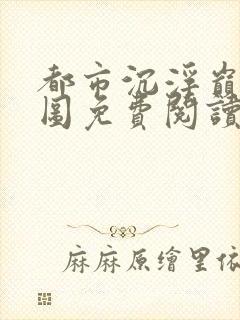 都市沉淫崩
圖免費閱讀
麻麻原繪里依